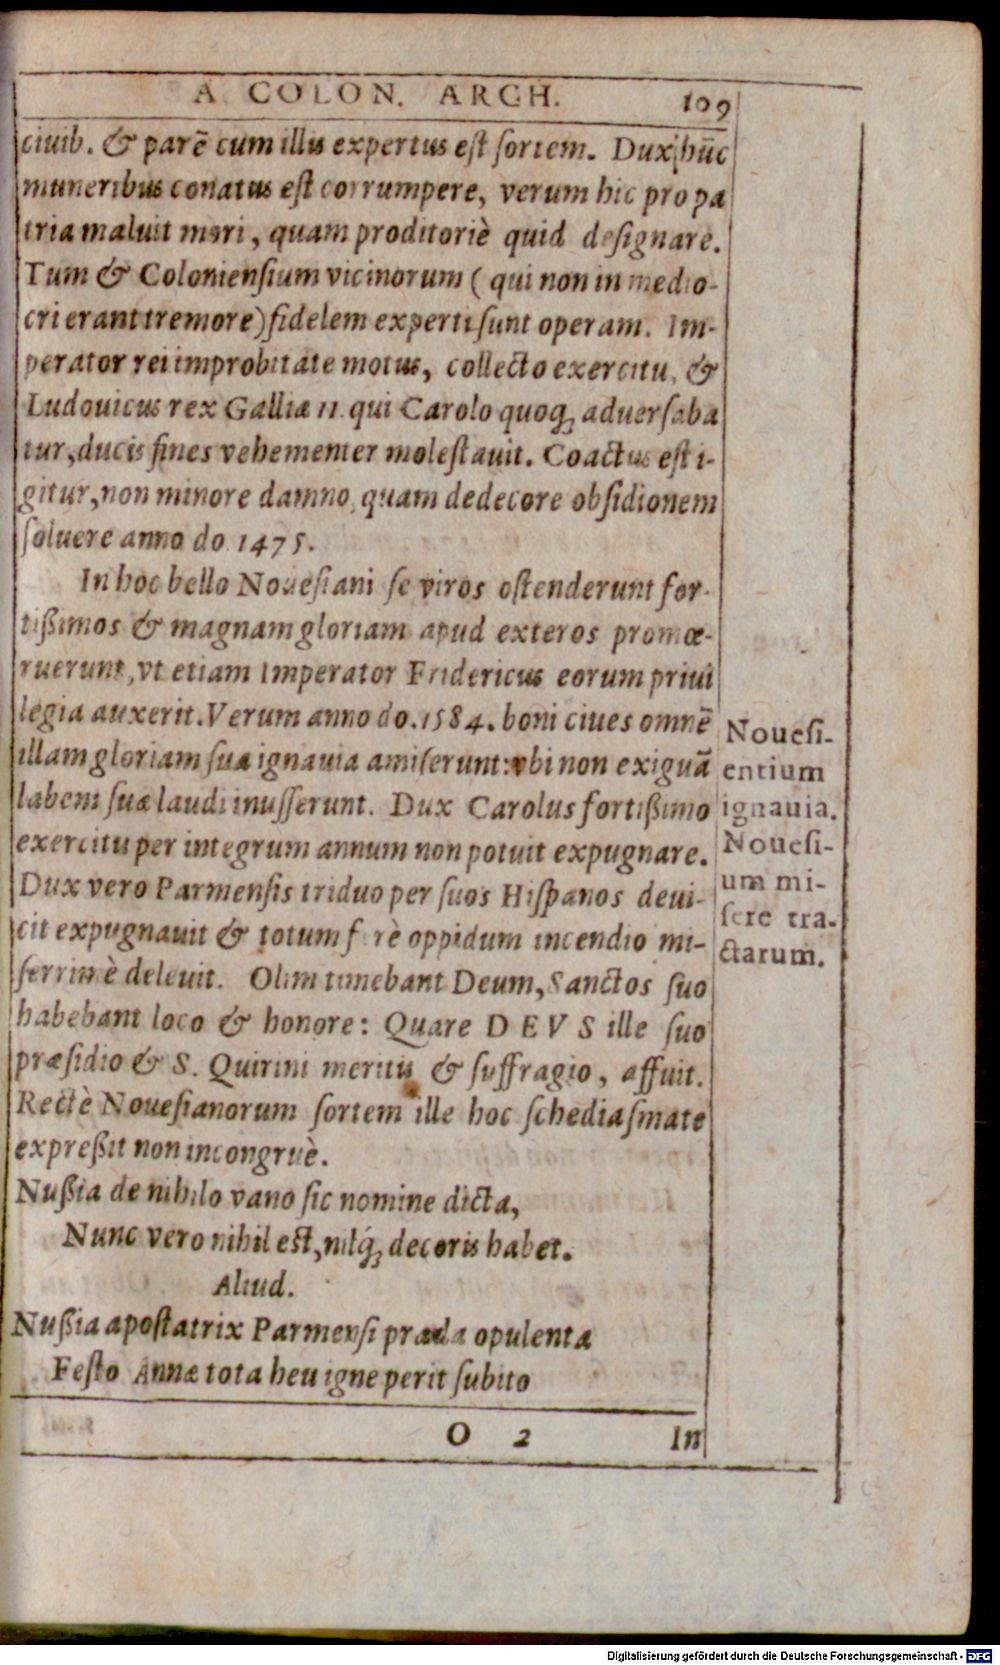 A COLON. ARCH. 109
ciuib. & parẽ cum illis expertus est sortem. Dux hũc
muneribus conatus est corrumpere, verum hic pro pa
tria maluit mori, quam proditoriè quid designare.
Tum & Coloniensium vicinorum (qui non in medio-
cri erant tremore) fidelem experti sunt operam. Im-
perator rei improbitate motus, collecto exercitu, &
Ludouicus rex Galliæ 11. qui Carolo quoq; aduersaba
tur, ducis fines vehementer molestauit. Coactus est i-
gitur, non minore damno, quam dedecore obsidionem
soluere anno do 1475.
In hoc bello Nouesiani se viros ostenderunt for-
tißimos & magnam gloriam apud exteros promœ-
ruerunt, vt etiam Imperator Fridericus eorum priui
legia auxerit. Verum anno do. 1584. boni ciues omnẽ
illam gloriam sua ignauia amiserunt: vbi non exiguã
labem suæ laudi inusserunt. Dux Carolus fortißimo
exercitu per integrum annum non potuit expugnare.
Dux vero Parmensis triduo per suos Hispanos deui-
cit expugnauit & totum f rè oppidum incendio mi-
serrimè deleuit. Olim timebant Deum, Sanctos suo
habebant loco & honore: Quare DEVS ille suo
præsidio & S. Quirini meritis & suffragio, affuit.
Rectè Nouesianorum sortem ille hoc schediasmate
expreßit non incongruè.
Nußia de nihilo vano sic nomine dicta,
Nunc vero nihil est, nilq́; decoris habet.
Aliud.
Nußia apostatrix Parmensi præda opulenta
Festo Annæ tota heu igne perit subito
O 2 In
Nouesi-
entium
ignauia.
Nouesi-
um mi-
sere tra-
ctarum.
Digitalisierung gefördert durch die Deutsche Forschungsgemeinschaft - DFG